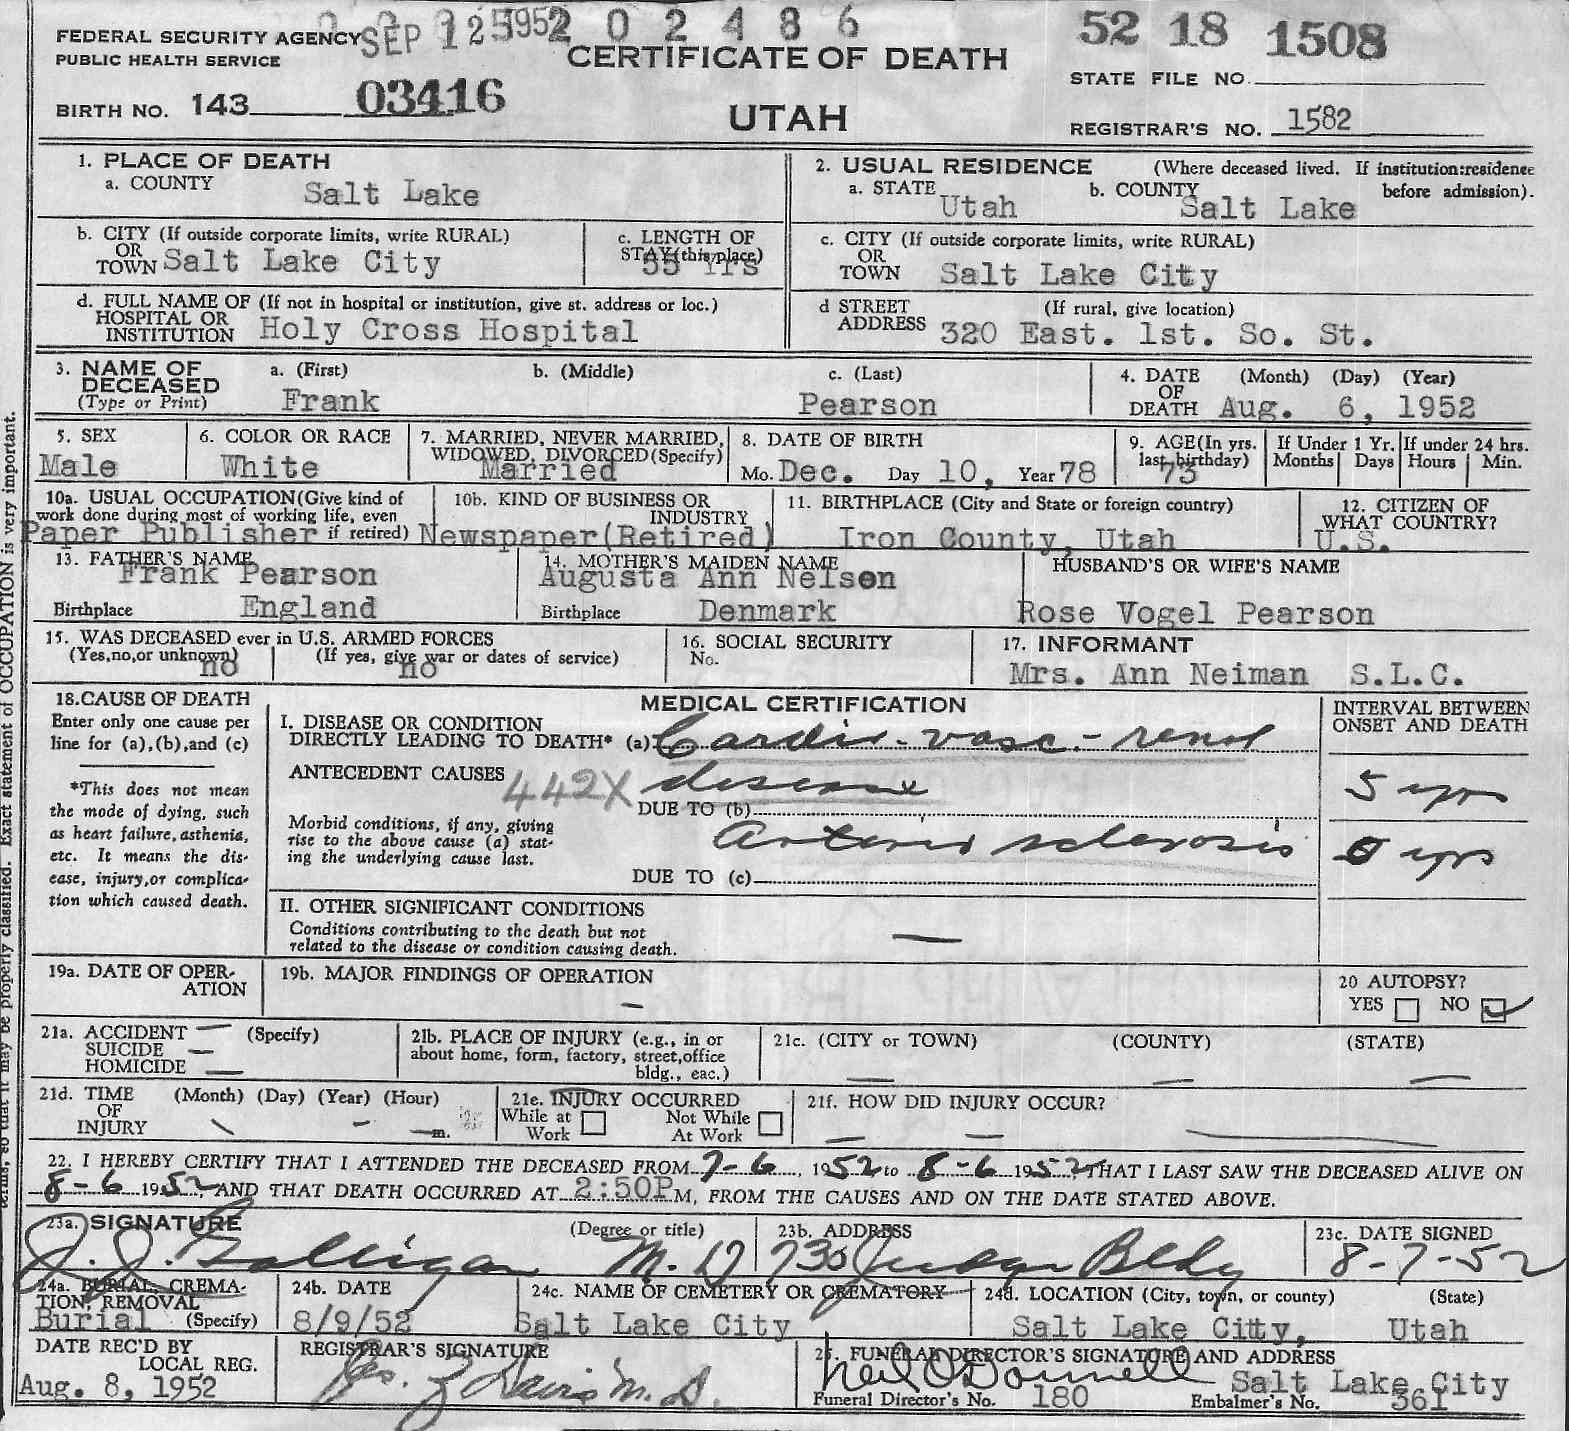 SEP 12 1952
0 2 4 8 6
52 18 1508
FEDERAL SECURITY AGENCY
PUBLIC HEALTH SERVICE
CERTIFICATE OF DEATH
STATE FILE NO.
BIRTH NO. 143 03416
UTAH
REGISTRAR'S NO. 1582
1. PLACE OF DEATH
a. COUNTY
Salt Lake
2. USUAL RESIDENCE (Where deceased lived. If institution:residence before admission).
a. STATE Utah b. COUNTY Salt Lake
b. CITY (If outside corporate limits, write RURAL)
OR
TOWN Salt Lake City
c. LENGTH OF
STAY (this place)
55 Yrs
c. CITY (If outside corporate limits, write RURAL)
OR
TOWN Salt Lake City
d. FULL NAME OF (If not in hospital or institution, give st. address or loc.)
HOSPITAL OR
INSTITUTION Holy Cross Hospital
d STREET (If rural, give location)
ADDRESS 320 East. 1st. So. St.
3. NAME OF DECEASED
(Type or Print)
a. (First) b. (Middle) c. (Last)
Frank Pearson
4. DATE OF DEATH (Month) (Day) (Year)
Aug. 6, 1952
5. SEX
Male
6. COLOR OR RACE
White
7. MARRIED, NEVER MARRIED,
WIDOWED, DIVORCED (Specify)
Married
8. DATE OF BIRTH
Mo. Dec. Day 10, Year 78
9. AGE (In yrs.
last birthday)
73
If Under 1 Yr.
Months Days
If under 24 hrs.
Hours Min.
10a. USUAL OCCUPATION (Give kind of
work done during most of working life, even
if retired)
Paper Publisher
10b. KIND OF BUSINESS OR
INDUSTRY
Newspaper(Retired)
11. BIRTHPLACE (City and State or foreign country)
Iron County, Utah
12. CITIZEN OF
WHAT COUNTRY?
U.S.
13. FATHER'S NAME
Frank Pearson
Birthplace England
14. MOTHER'S MAIDEN NAME
Augusta Ann Nelson
Birthplace Denmark
HUSBAND'S OR WIFE'S NAME
Rose Vogel Pearson
15. WAS DECEASED ever in U.S. ARMED FORCES
(Yes,no,or unknown) (If yes, give war or dates of service)
no no
16. SOCIAL SECURITY
No.
17. INFORMANT
Mrs. Ann Neiman S.L.C.
18. CAUSE OF DEATH
Enter only one cause per
line for (a),(b),and (c)
*This does not mean
the mode of dying, such
as heart failure, asthenia,
etc. It means the dis-
ease, injury,or complica-
tion which caused death.
MEDICAL CERTIFICATION
INTERVAL BETWEEN
ONSET AND DEATH
I. DISEASE OR CONDITION
DIRECTLY LEADING TO DEATH* (a) Cardio-vasc.-renal
ANTECEDENT CAUSES 442X disease 5 yrs
DUE TO (b)
Morbid conditions, if any, giving
rise to the above cause (a) stat-
ing the underlying cause last.
Arterio sclerosis yrs
DUE TO (c)
II. OTHER SIGNIFICANT CONDITIONS
Conditions contributing to the death but not
related to the disease or condition causing death.
—
19a. DATE OF OPER-
ATION
19b. MAJOR FINDINGS OF OPERATION
—
20 AUTOPSY?
YES NO
21a. ACCIDENT — (Specify)
SUICIDE —
HOMICIDE —
21b. PLACE OF INJURY (e.g., in or
about home, form, factory, street,office
bldg., eac.)
21c. (CITY or TOWN) (COUNTY) (STATE)
— — —
21d. TIME (Month) (Day) (Year) (Hour)
OF
INJURY m.
21e. INJURY OCCURRED
While at Work
Not While At Work
21f. HOW DID INJURY OCCUR?
22. I HEREBY CERTIFY THAT I ATTENDED THE DECEASED FROM 7-6, 1952 to 8-6 1952, THAT I LAST SAW THE DECEASED ALIVE ON
8-6 1952, AND THAT DEATH OCCURRED AT 2:50P M, FROM THE CAUSES AND ON THE DATE STATED ABOVE.
23a. SIGNATURE (Degree or title)
J. J. Galligan M.D
23b. ADDRESS
730 Judge Bldg
23c. DATE SIGNED
8-7-52
24a. BURIAL, CREMA-
TION, REMOVAL
(Specify)
Burial
24b. DATE
8/9/52
24c. NAME OF CEMETERY OR CREMATORY
Salt Lake City
24d. LOCATION (City, town, or county) (State)
Salt Lake Citty, Utah
DATE REC'D BY
LOCAL REG.
Aug. 8, 1952
REGISTRAR'S SIGNATURE
Jas. Z Davis M.D.
25. FUNERAL DIRECTOR'S SIGNATURE AND ADDRESS
Neil O'Donnell Salt Lake City
Funeral Director's No. 180 Embalmer's No. 361
terms, so that it may be properly classified. Exact statement of OCCUPATION is very important.